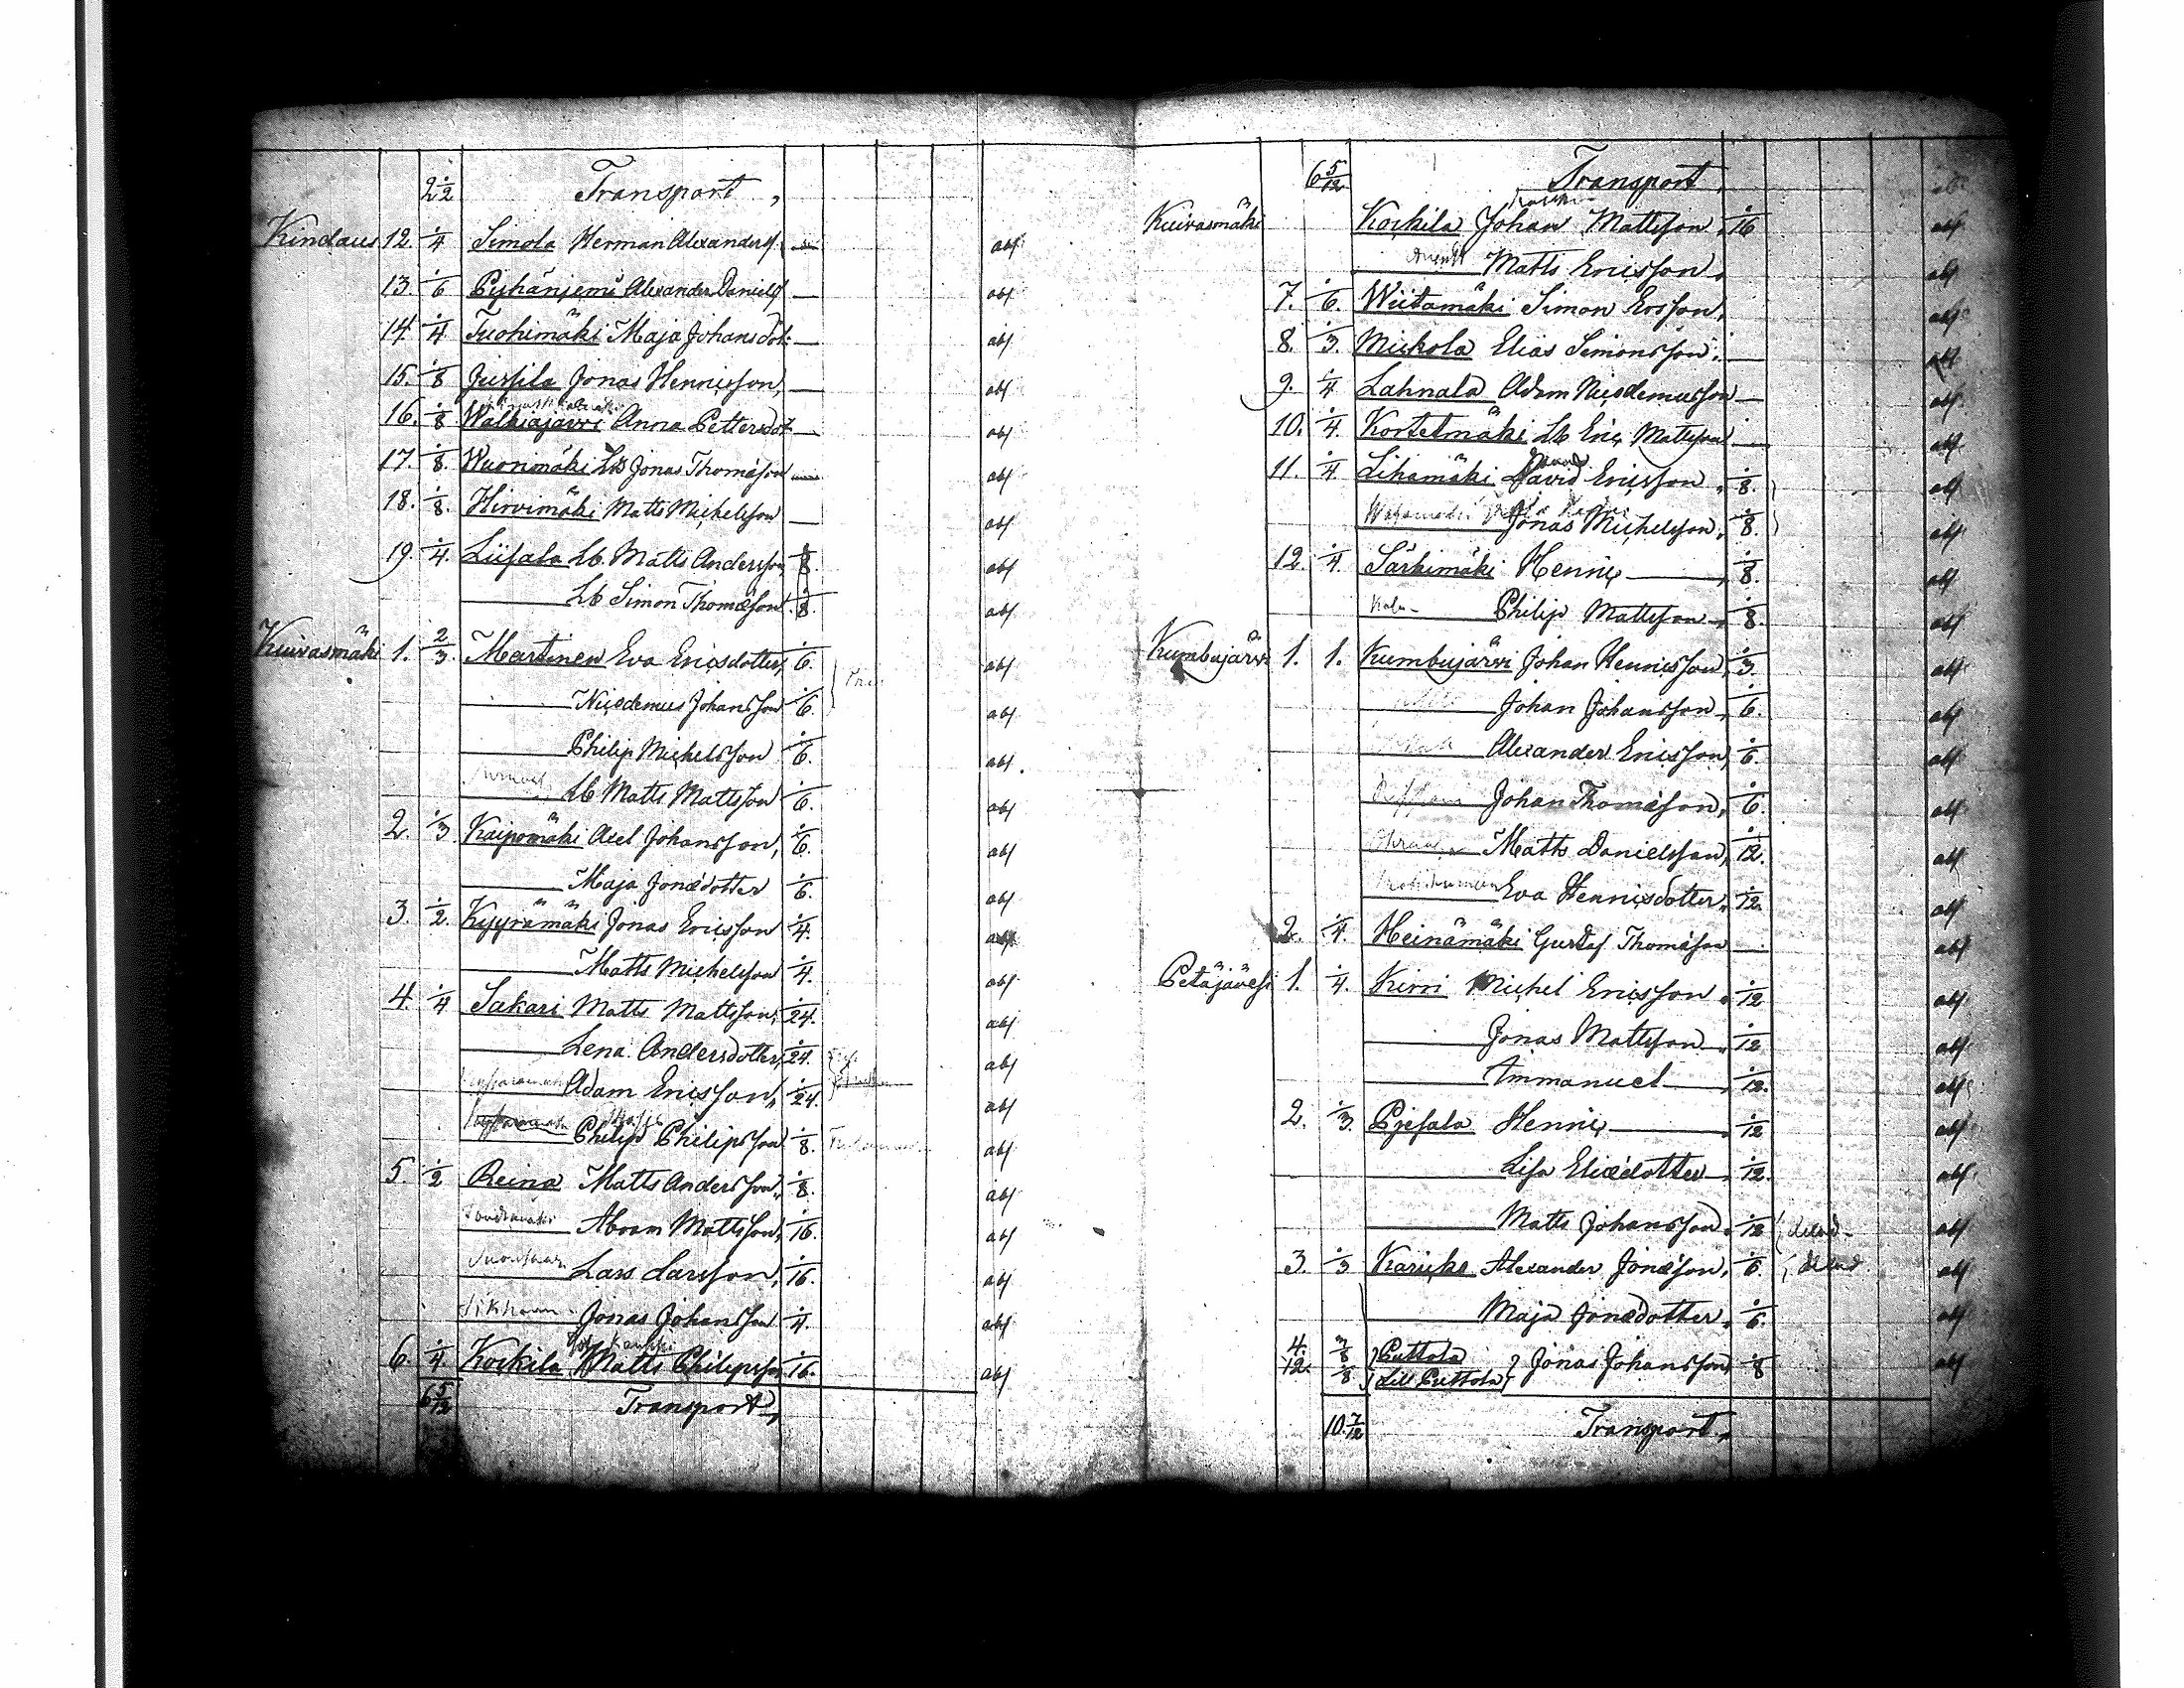 2 1/2 Transport
Kindaus 12. 1/4 Simola Herman Alexanders. — abs
13. 1/6 Pyhäniemi Alexander Daniels — abs
14. 1/4 Tuohimäki Maja Johansdot: — abs
15. 1/8 Jussila Jonas Henricsson, — abs
16. 1/8 Walkiajärvi Anna Pettersdot — abs
17. 1/8. Wuorimäki Lb Jonas Thomasson — abs
18. 1/8. Hirvimäki Matts Michelsson — abs
19. 1/4. Liisala Lb. Matts Andersson 1/8. abs
Lb Simon Thomasson. 1/8. abs
Kuivasmäki 1. 2/3. Martinen Eva Ericsdotter, 1/6. abs
Nicodemus Johansson 1/6. abs
Philip Michelsson 1/6. abs.
Lb Matts Mattsson 1/6. abs
2. 1/3. Kaipomäki Axel Johansson, 1/6. abs
Maja Jonædotter 1/6. abs
3. 1/2. Kyyrämäki Jonas Ericsson 1/4. abs
Matts Michelsson 1/4. abs
4. 1/4 Sakari Matts Mattsson, 1/24. abs
Lena Andersdotter, 1/24. abs
Adam Ericsson, 1/24. abs
Philip Philipsson 1/8. abs
5. 1/2 Reina Matts Andersson, 1/8. abs
Abram Mattsson, 1/16. abs
Lars Larsson, 1/16. abs
Jonas Johansson 1/4. abs
6. 1/4. Kockila Matts Philipsson 1/16. abs
6 5/12 Transport,
6 5/12. Transport, abs
Kuivasmäki Kockila Johan Mattsson, 1/16 abs
Matts Ericsson, abs
7. 1/6. Wiitamäki Simon Ersson, abs
8. 1/3. Mickola Elias Simonsson. — abs
9. 1/4 Lahnala Adam Nicodemusson — abs
10. 1/4. Kortetmäki Lb Eric Mattsson — abs
11. 1/4 Lihamäki David Ericsson, 1/8. abs
Jonas Michelsson, 1/8. abs
12. 1/4. Särkimäki Henric —, 1/8. abs
Philip Mattsson, 1/8. abs
Kumbujärvi 1. 1. Kumbujärvi Johan Henricsson, 1/3. abs
Johan Johansson, 1/6. abs
Alexander Ericsson, 1/6. abs
Johan Thomasson, 1/6. abs
Matts Danielsson, 1/12. abs
Eva Henricsdotter, 1/12. abs
2. 1/4. Heinämäki Gustaf Thomasson — abs
Petäjävesi 1. 1/4. Kirri Michel Ericsson, 1/12 abs
Jonas Mattsson, 1/12 abs
Immanuel —, 1/12. abs
2. 1/3. Pjesala Henric —, 1/12 abs
Lisa Eliædotter, 1/12. abs
Matts Johansson, 1/12 abs
3. 1/3 Karicko Alexander Jonæson, 1/6. abs
Maja Jonædotter, 1/6. abs
4. 3/8 Puttola
12. 1/8 Lill Puttola Jonas Johansson, 1/8 abs
10 7/12 Transport,